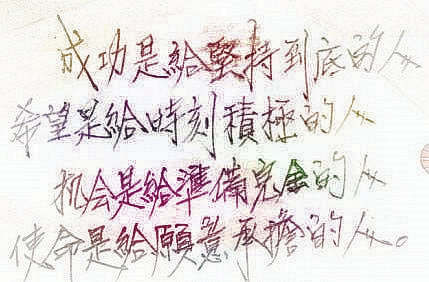 成功是給堅持到底的人
希望是給時刻積極的人
机会是給準備完全的人
使命是給願意承擔的人。